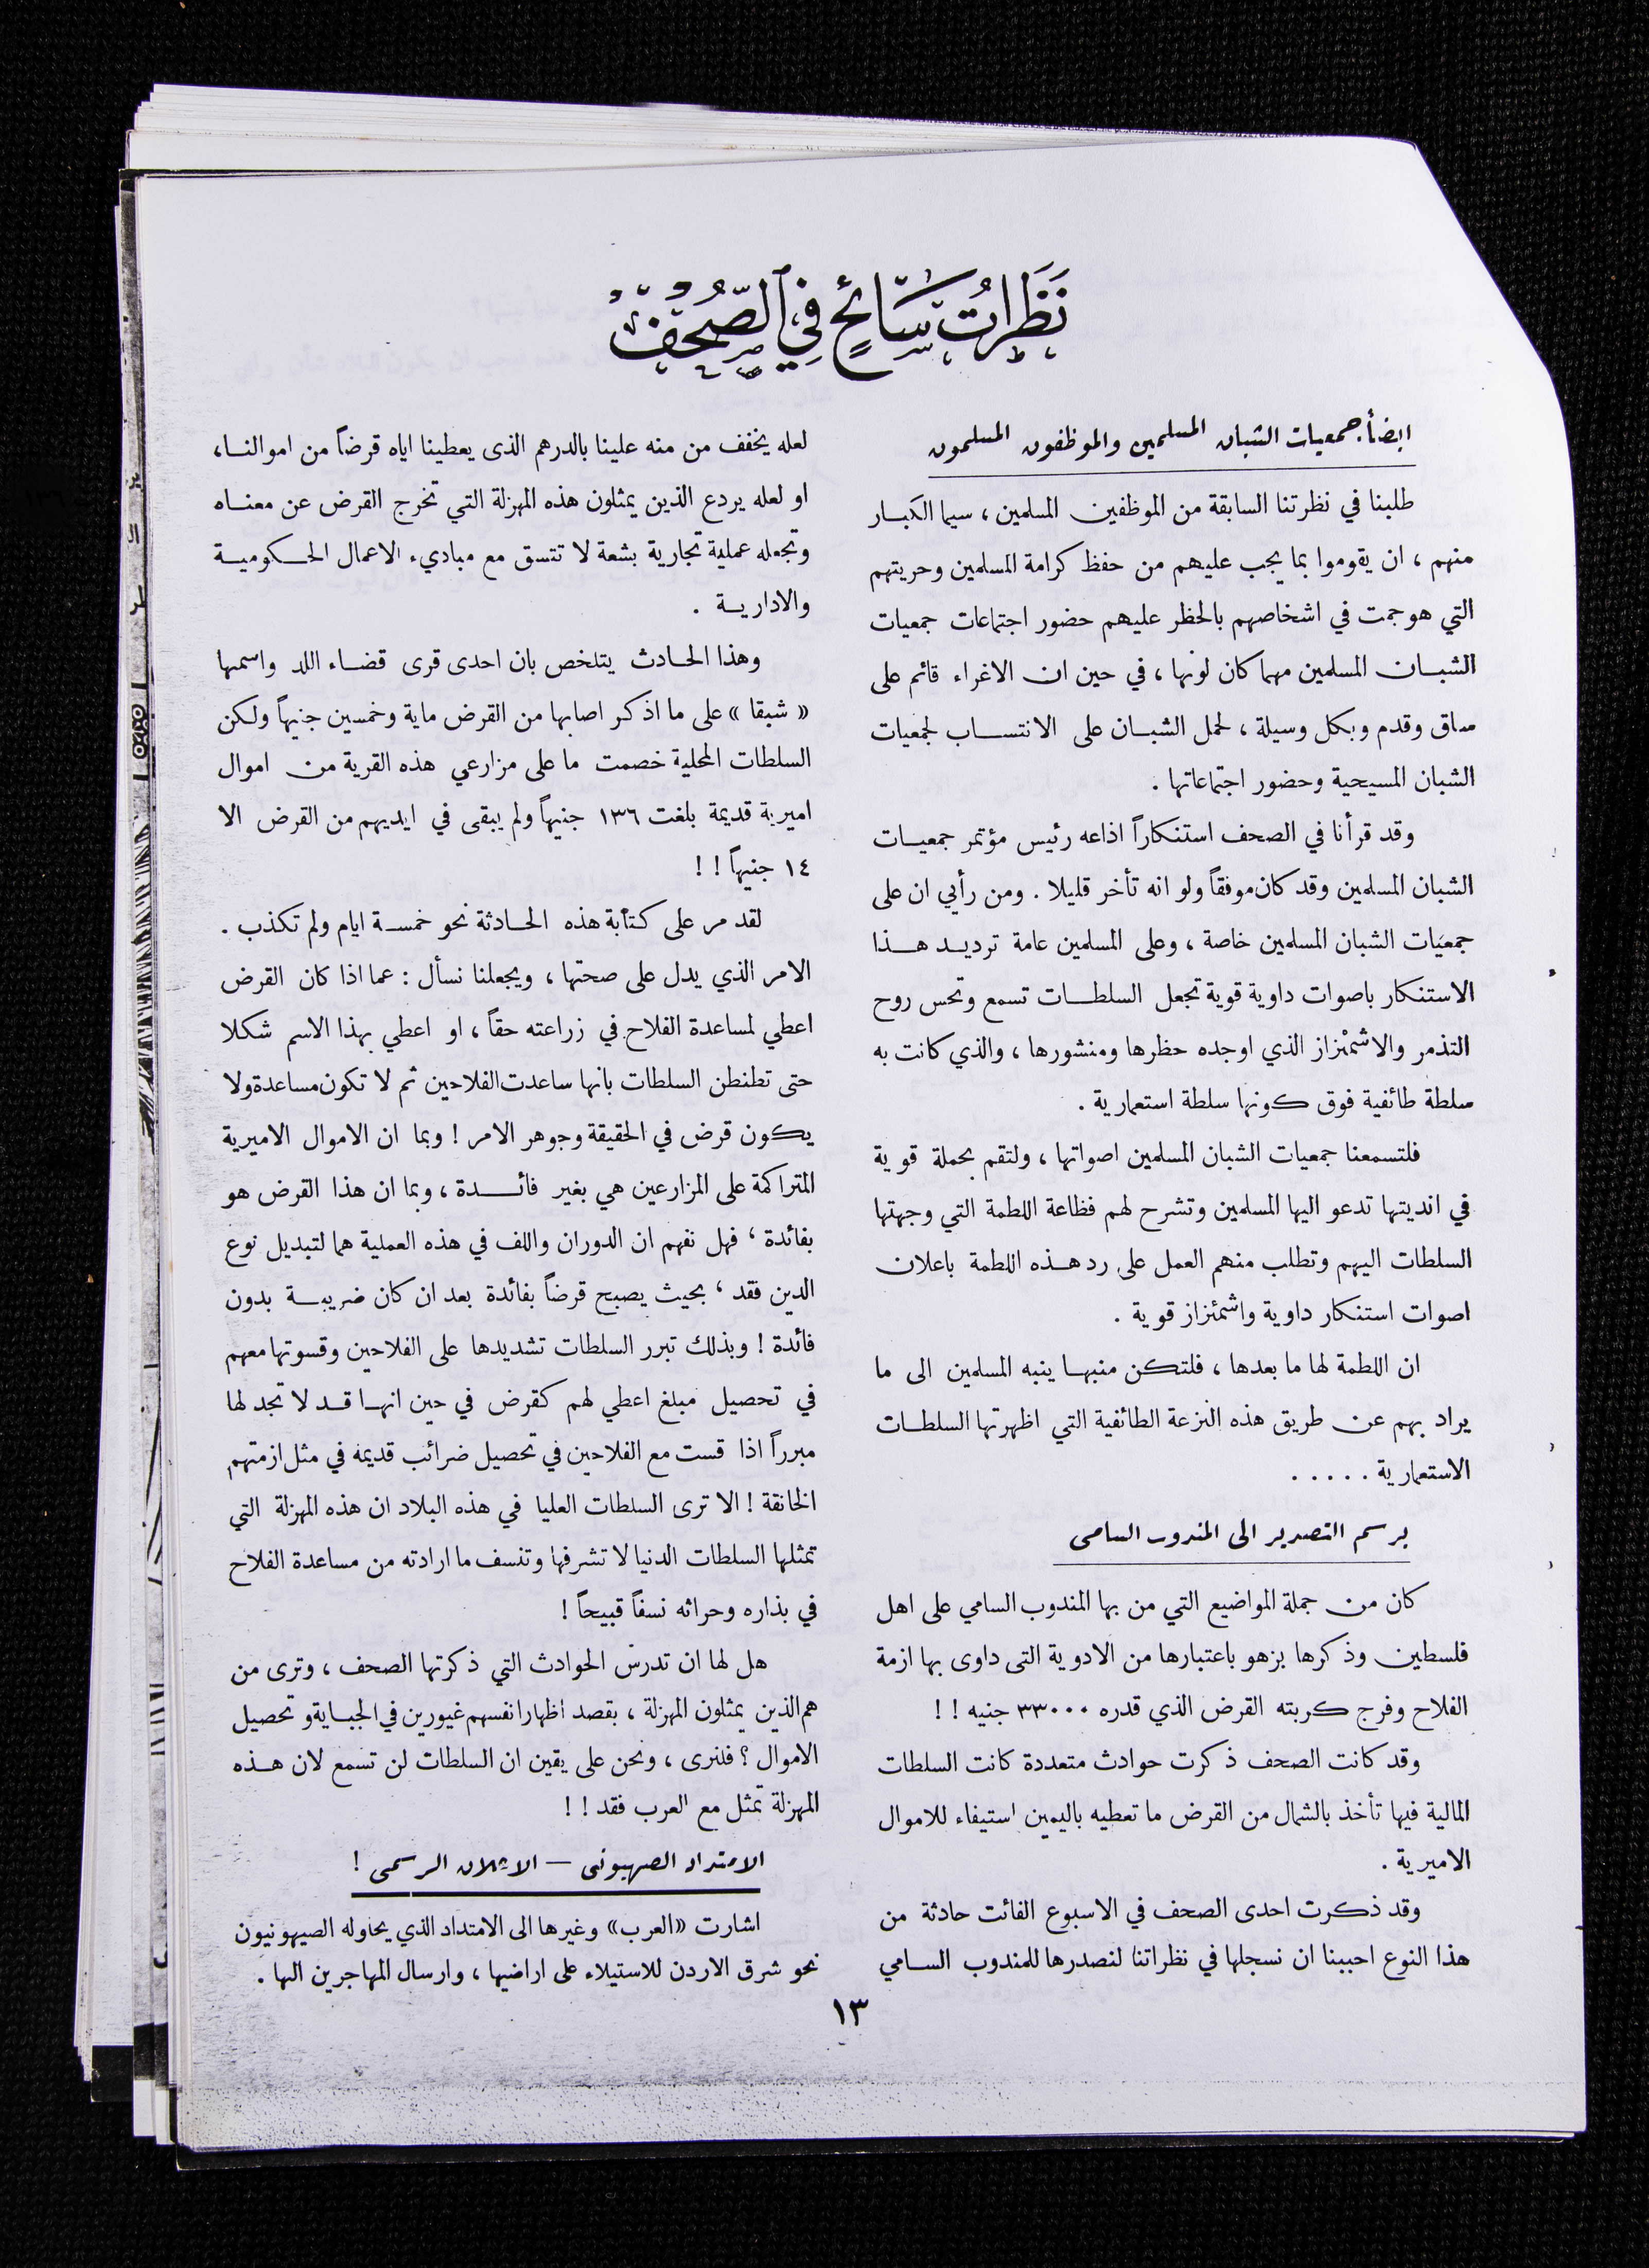 نَظَراتُ سَائحٍ فِي الصُّحُف
ايضاً جمعيات الشبان المسلمين والموظفون المسلمون
طلبنا في نظرتنا السابقة من الموظفين المسلمين ، سيما الكبار
منهم ، ان يقوموا بما يجب عليهم من حفظ كرامة المسلمين وحريتهم
التي هوجمت في اشخاصهم بالحظر عليهم حضور اجتماعات جمعيات
الشبان المسلمين مهما كان لونها ، في حين ان الاغراء قائم على
ساق وقدم وبكل وسيلة ، لحمل الشبان على الانتساب لجمعيات
الشبان المسيحية وحضور اجتماعاتها .
وقد قرأنا في الصحف استنكاراً اذاعه رئيس مؤتمر جمعيات
الشبان المسلمين وقد كان موفقاً ولو انه تأخر قليلا . ومن رأيي ان على
جمعيات الشبان المسلمين خاصة ، وعلى المسلمين عامة ترديد هذا
الاستنكار باصوات داوية قوية تجعل السلطات تسمع وتحس روح
التذمر والاشمئزاز الذي اوجده حظرها ومنشورها ، والذي كانت به
سلطة طائفية فوق كونها سلطة استعمارية .
فلتسمعنا جمعيات الشبان المسلمين اصواتها ، ولتقم بحملة قوية
في انديتها تدعو اليها المسلمين وتشرح لهم فظاعة اللطمة التي وجهتها
السلطات اليهم وتطلب منهم العمل على رد هذه اللطمة باعلان
اصوات استنكار داوية واشمئزاز قوية .
ان اللطمة لها ما بعدها ، فلتكن منبها ينبه المسلمين الى ما
يراد بهم عن طريق هذه النزعة الطائفية التي اظهرتها السلطات
الاستعمارية . . . . .
برسم التصدير الى المندوب السامى
كان من جملة المواضيع التي من بها المندوب السامي على اهل
فلسطين وذكرها بزهو باعتبارها من الادوية التى داوى بها ازمة
الفلاح وفرج كربته القرض الذي قدره ٣٣٠٠٠ جنيه ! !
وقد كانت الصحف ذكرت حوادث متعددة كانت السلطات
المالية فيها تأخذ بالشمال من القرض ما تعطيه باليمين استيفاء للاموال
الاميرية .
وقد ذكرت احدى الصحف في الاسبوع الفائت حادثة من
هذا النوع احببنا ان نسجلها في نظراتنا لنصدرها للمندوب السامي
لعله يخفف من منه علينا بالدرهم الذى يعطينا اياه قرضاً من اموالنا،
او لعله يردع الذين يمثلون هذه المهزلة التي تخرج القرض عن معناه
وتجعله عملية تجارية بشعة لا تتسق مع مباديء الاعمال الحكومية
والادارية .
وهذا الحادث يتلخص بان احدى قرى قضاء اللد واسمها
« شبقا » على ما اذكر اصابها من القرض ماية وخمسين جنيهاً ولكن
السلطات المحلية خصمت ما على مزارعي هذه القرية من اموال
اميرية قديمة بلغت ١٣٦ جنيهاً ولم يبقى في ايديهم من القرض الا
١٤ جنيهاً ! !
لقد مر على كتابة هذه الحادثة نحو خمسة ايام ولم تكذب .
الامر الذي يدل على صحتها ، ويجعلنا نسأل : عما اذا كان القرض
اعطي لمساعدة الفلاح في زراعته حقاً ، او اعطي بهذا الاسم شكلا
حتى تطنطن السلطات بانها ساعدت الفلاحين ثم لا تكون مساعدة ولا
يكون قرض في الحقيقة وجوهر الامر ! وبما ان الاموال الاميرية
المتراكمة على المزارعين هي بغير فائدة ، وبما ان هذا القرض هو
بفائدة ، فهل نفهم ان الدوران واللف في هذه العملية هما لتبديل نوع
الدين فقد ، بحيث يصبح قرضاً بفائدة بعد ان كان ضريبة بدون
فائدة ! وبذلك تبرر السلطات تشديدها على الفلاحين وقسوتها معهم
في تحصيل مبلغ اعطي لهم كقرض في حين انها قد لا تجد لها
مبرراً اذا قست مع الفلاحين في تحصيل ضرائب قديمة في مثل ازمتهم
الخانقة ! الا ترى السلطات العليا في هذه البلاد ان هذه المهزلة التي
تمثلها السلطات الدنيا لا تشرفها وتنسف ما ارادته من مساعدة الفلاح
في بذاره وحراثه نسفاً قبيحاً !
هل لها ان تدرس الحوادث التي ذكرتها الصحف ، وترى من
هم الذين يمثلون المهزلة ، بقصد اظهار انفسهم غيورين في الجباية و تحصيل
الاموال ؟ فلنرى ، ونحن على يقين ان السلطات لن تسمع لان هذه
المهزلة تمثل مع العرب فقد ! !
الامتداد الصهيونى — الاعلان الرسمى !
اشارت «العرب» وغيرها الى الامتداد الذي يحاوله الصيهونيون
نحو شرق الاردن للاستيلاء على اراضيها ، وارسال المهاجرين اليها .
١٣